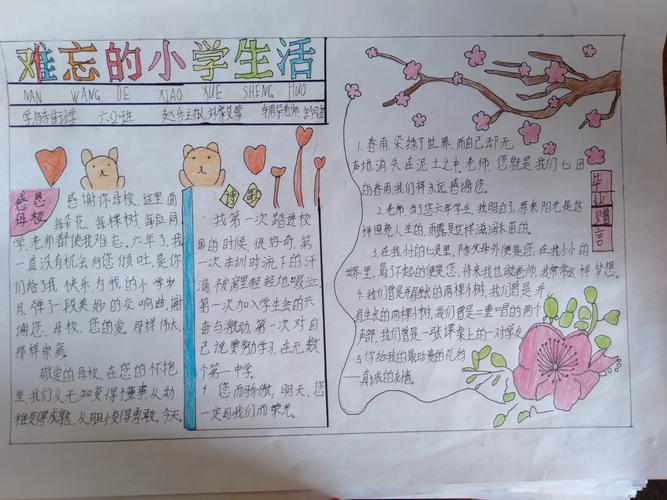 难忘的小学生活
NAN WANG DE XIAO XUE SHENG HUO
六(2)班
感恩
母校
感谢你母校,这里面
每朵花,每棵树,每位同
学,老师都使我难忘。六年了,我
一直没有机会向您倾吐,是你
们给了我快乐,为我的小学岁
月,弹了一段美妙的交响曲,谢
谢您,母校,您的爱,那样伟大,
那样崇高
敬爱的母校,在您的怀抱
里,我们从无知变得懂事,从幼
稚变得成熟,从胆小变得勇敢。今天,
我第一次踏进校
园的时候,很好奇,第
一次来训时流下的汗
第一次加入学生会的兴
奋与激动,第一次对自
己说要努力学习,在无数
个第一中学。
您而骄傲,明天,您
一定为我们而荣光。
毕业赠言
1.春雨,染绿了世界,而自己却无
声地消失在泥土之中,老师,您就是我们心田
的春雨,我们将永远感谢您。
2.老师,当了您六年学生,我明白了,原来阳光是这
样照亮人生的,雨露是这样滋润禾苗的。
3.在我小的心灵里,除父母外便是您,在我小小的
世界里,最了不起的便是您,将来我也做老师,我常常这样梦想。
4.我们曾是并肩生长的两棵小树,我们曾是并
肩生长的两棵小树,我们曾是二重唱的两个
声部,我们曾是一张课桌上的一对学友
5.你给我的最珍贵的礼物
——真诚的友情。